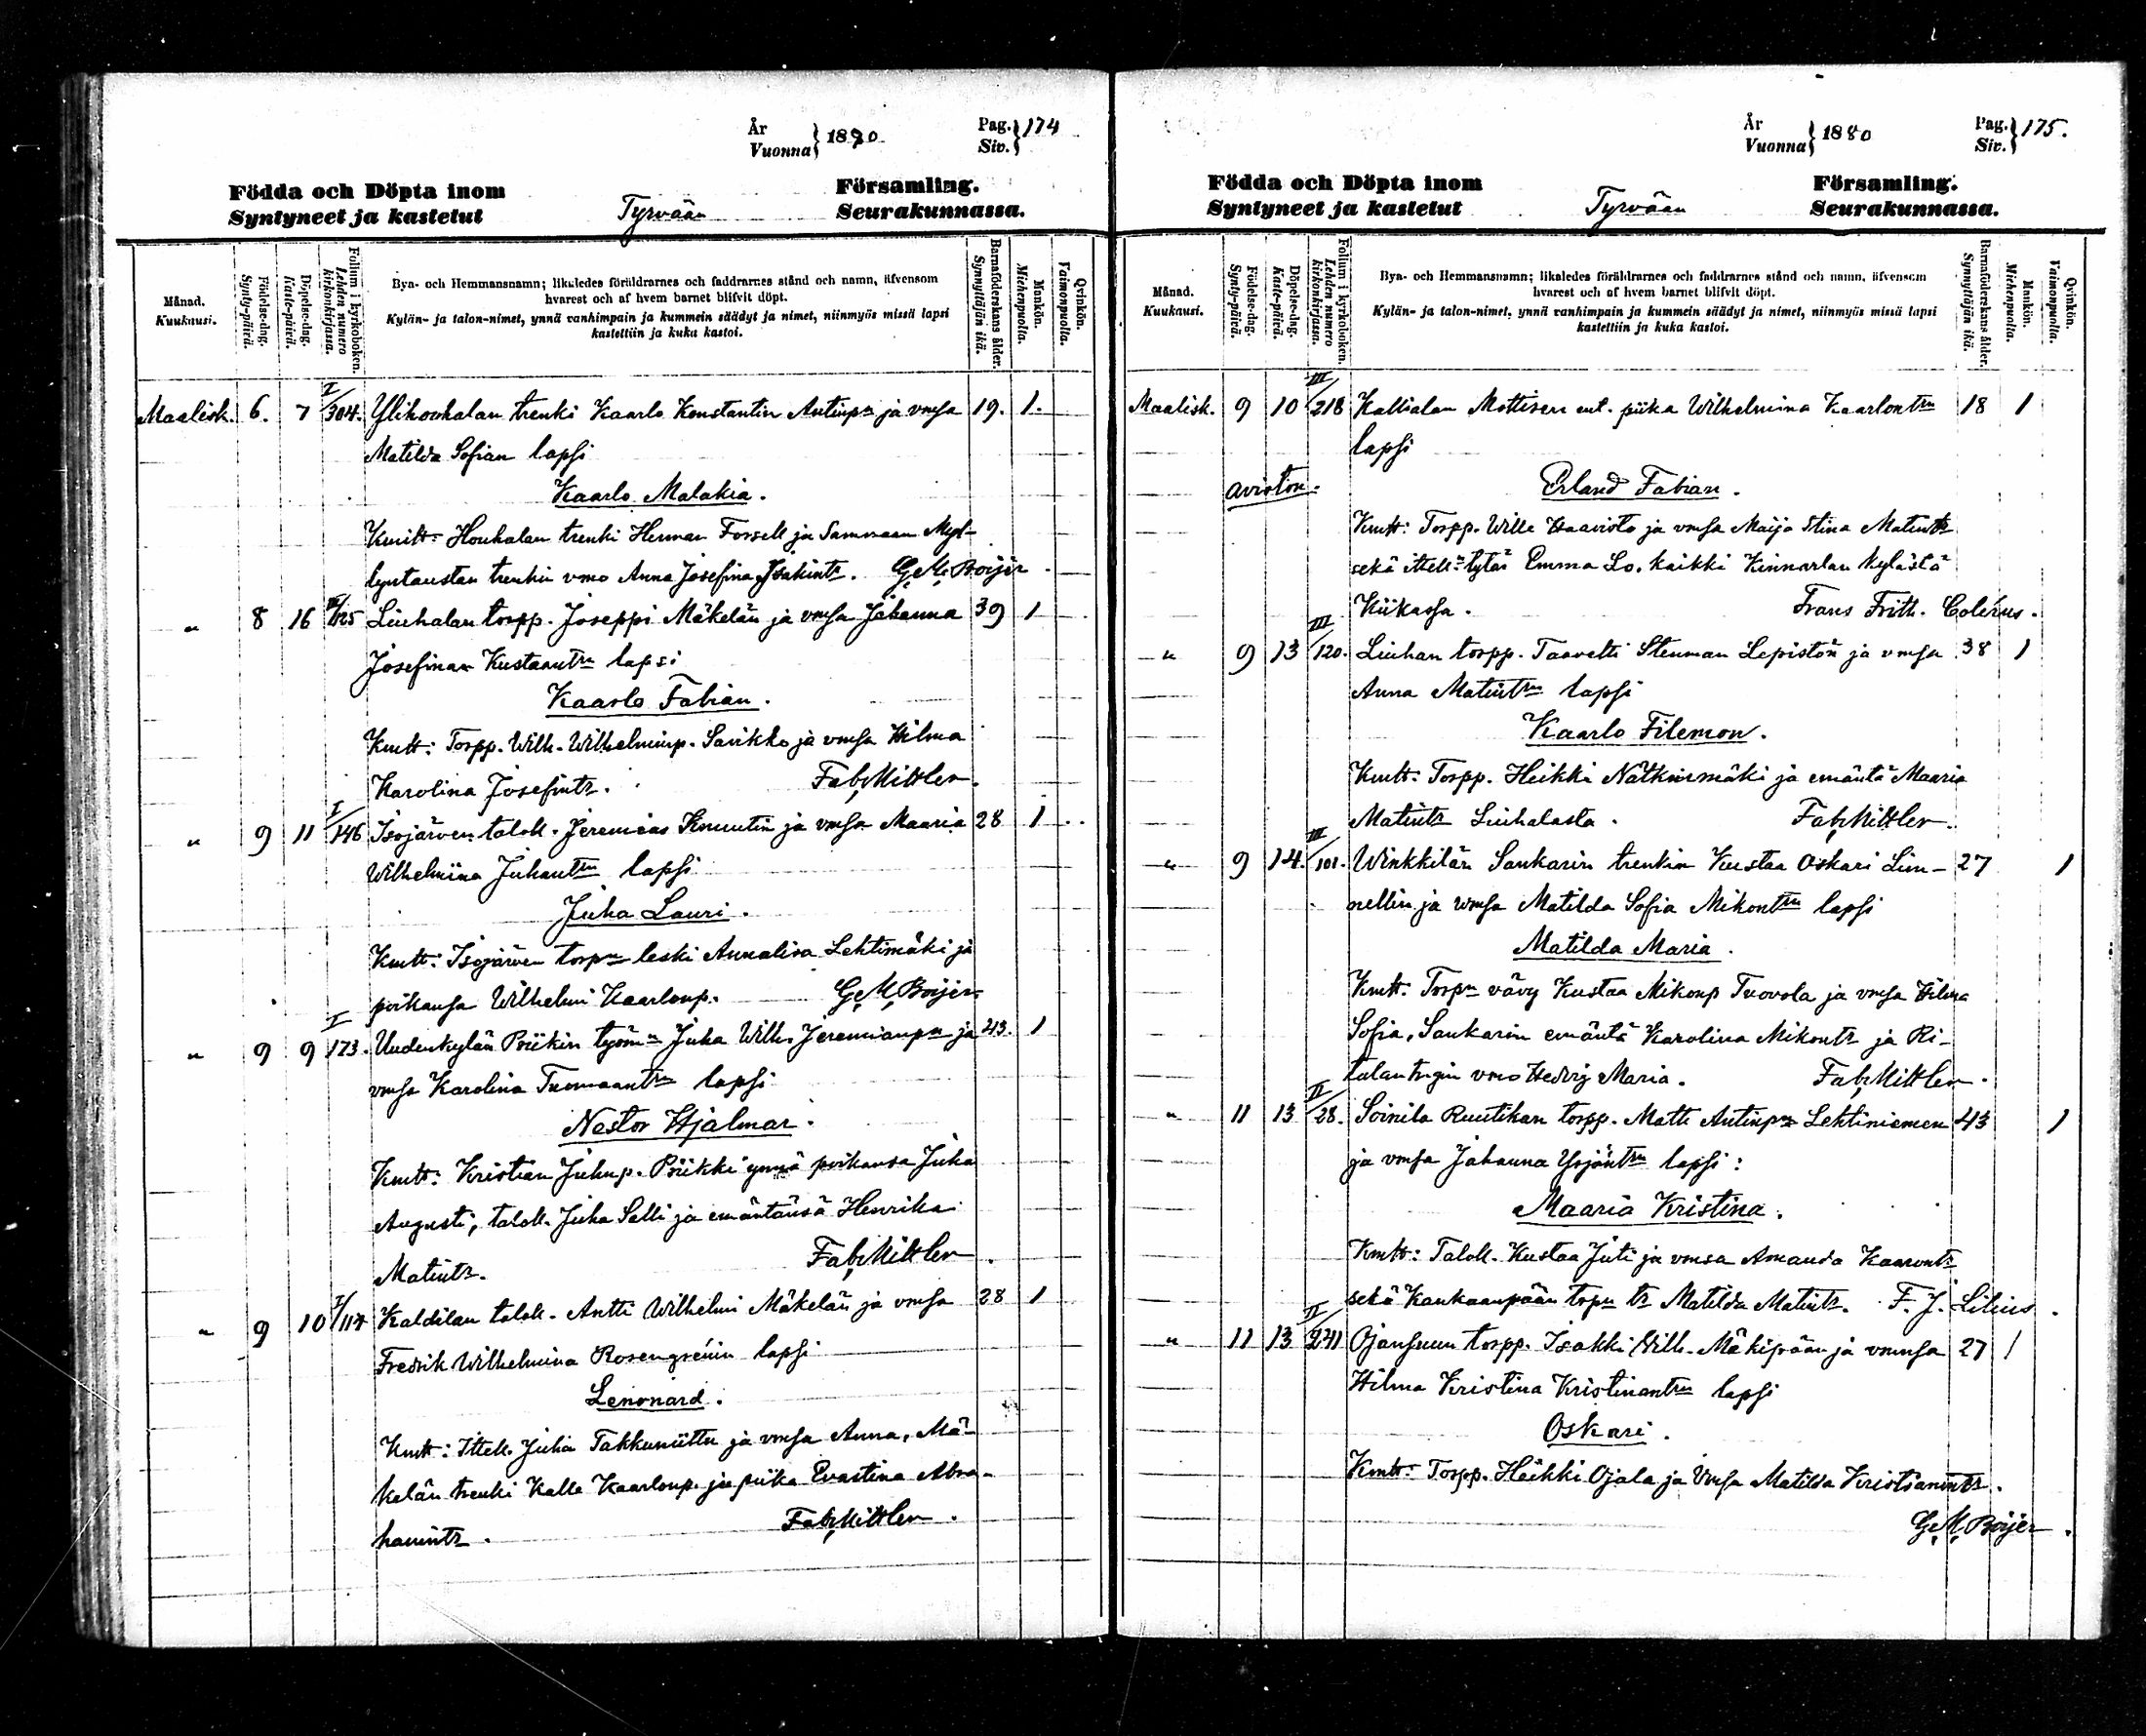 År
Vuonna } 1880
Pag.
Siv. } 174
Födda och Döpta inom Församling.
Syntyneet ja kastetut Tyrvään Seurakunnassa.
Månad.
Kuukausi.
Födelse-dag.
Synty-päivä.
Döpelse-dag.
Kaste-päivä.
Folium i kyrkoboken.
Lehden numero kirkonkirjassa.
Bya- och Hemmansnamn; likaledes föräldrarnes och faddrarnes stånd och namn, äfvensom
hvarest och af hvem barnet blifvit döpt.
Kylän- ja talon-nimet, ynnä vanhimpain ja kummein säädyt ja nimet, niinmyös missä lapsi
kastettiin ja kuka kastoi.
Barnaföderskans ålder.
Synnyttäjän ikä.
Mankön.
Miehenpuolta.
Qvinkön.
Vaimonpuolta.
Maalisk. 6. 7 I/304. Ylihouhalan trenki Kaarlo Konstantin Antinpn ja vmsa 19. 1.
Matilda Sofian lapsi
Kaarlo Malakia.
Kmitt: Houhalan trenki Herman Forsell ja Sammaan Myl-
lyntaustan trenkin vmo Anna Josefina Isakintr. G. M. Boijer
" 8 16 125 Liuhalan torpp. Joseppi Mäkelän ja vmsa Johanna 39 1
Josefinan Kustaantrn lapsi
Kaarlo Fabian.
Kmtt: Torpp. Wilh. Wilhelminp. Savikko ja vmsa Hilma
Karolina Josefintr. Fab. Mittler.
" 9 11 I/146 Isojärven talok. Jeremias Knuutin ja vmsa Maaria 28 1
Wilhelmiina Juhantrn lapsi
Juha Lauri.
Kmtt: Isojärven torpn leski Annaliisa Lehtimäki ja
poikansa Wilhelmi Kaarlonp. G. M. Boijer
" 9 9 I/173. Uudenkylän Pöikin työmn Juha Wilh. Jeremianpn ja 23. 1
vmsa Karolina Tuomaantrn lapsi
Nestor Hjalmar.
Kmtt: Kristian Juhnp. Pöikki ynnä poikansa Juha
Augusti, talok. Juha Salli ja emäntänsä Henrika
Matintr. Fab. Mittler
" 9 10 I/117 Kaldilan talok. Antti Wilhelmi Mäkelän ja vmsa 28 1
Fredrik Wilhelmina Rosengrénin lapsi
Lenonard.
Kmtt: Ittell. Juha Takkuniittu ja vmsa Anna, Mä-
kelän trenki Kalle Kaarlonp. ja piika Evastina Abra-
hamintr. Fab. Mittler.
År
Vuonna } 1880
Pag.
Siv. } 175.
Födda och Döpta inom Församling.
Syntyneet ja kastetut Tyrvään Seurakunnassa.
Månad.
Kuukausi.
Födelse-dag.
Synty-päivä.
Döpelse-dag.
Kaste-päivä.
Folium i kyrkoboken.
Lehden numero kirkonkirjassa.
Bya- och Hemmansnamn; likaledes föräldrarnes och faddrarnes stånd och namn, äfvensom
hvarest och af hvem barnet blifvit döpt.
Kylän- ja talon-nimet, ynnä vanhimpain ja kummein säädyt ja nimet, niinmyös missä lapsi
kastettiin ja kuka kastoi.
Barnaföderskans ålder.
Synnyttäjän ikä.
Mankön.
Miehenpuolta.
Qvinkön.
Vaimonpuolta.
Maalisk. 9 10 III/218 Kallialan Mottisen ent. piika Wilhelmina Kaarlontrn 18 1
lapsi
avioton. Erland Fabian.
Kmtt: Torpp. Wille Haavisto ja vmsa Maija Stina Matintr
sekä ittell:n tytär Emma Lo. kaikki Kinnarlan kylästä
Kiikassa. Frans Frith. Colérus.
" 9 13 III/120. Liuhan torpp. Taavetti Stenman Lepistön ja vmsa 38 1
Anna Matintrn lapsi
Kaarlo Filemon.
Kmtt: Torpp. Heikki Nätkinmäki ja emäntä Maaria
Matintr Liuhalasta. Fab. Mittler.
" 9 14. III/101. Winkkilän Sankarin trenkin Kustaa Oskari Lin- 27 1
nellin ja vmsa Matilda Sofia Mikontrn lapsi
Matilda Maria.
Kmtt: Torpn vävy Kustaa Mikonp Tuovola ja vmsa Hilma
Sofia, Sankarin emäntä Karolina Mikontr ja Ri-
talan trngin vmo Hedvig Maria. Fab. Mittler.
" 11 13 II/28. Soinila Ruutikan torpp. Matti Antinpn Lehtiniemen 43 1
ja vmsa Johanna Yrjöntrn lapsi:
Maaria Kristina.
Kmtt: Talok. Kustaa Juti ja vmsa Amanda Kaarontr
sekä Kaukaanpään torpn tr Matilda Matintr. F. J. Lilius.
" 11 13 II/241 Ojansuun torpp. Isakki Vilh. Mäkipään ja vmmsa 27 1
Hilma Kristina Kristinantrn lapsi
Oskari.
Kmtt: Torpp. Heikki Ojala ja Vmsa Matilda Kristianintr.
G. M. Boijer.